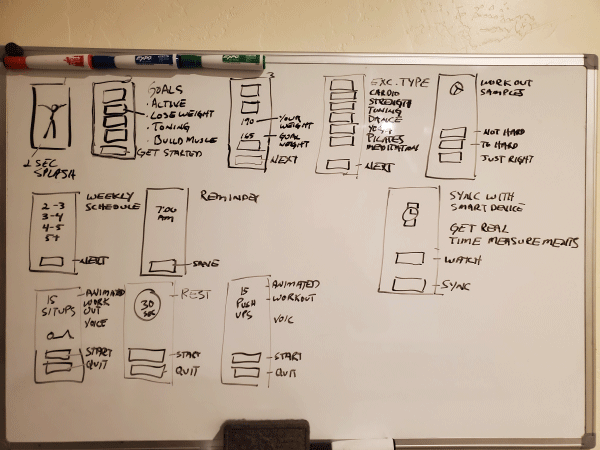 EXPO
EXPO
EXPO
1 SEC
SPLASH
GOALS
• ACTIVE
• LOSE WEIGHT
• TONING
• BUILD MUSCLE
GET STARTED
3
190
YOUR
WEIGHT
165
GOAL
WEIGHT
NEXT
EXC. TYPE
CARDIO
STRENGTH
TUNING
DANCE
YOGA
PILATES
MEDITATION
NEXT
WORKOUT
SAMPLES
NOT HARD
TO HARD
JUST RIGHT
WEEKLY
SCHEDULE
2-3
3-4
4-5
5+
NEXT
REMINDER
7:00
AM
SAVE
SYNC WITH
SMART DEVICE
GET REAL
TIME MEASUREMENTS
WATCH
SYNC
15
SITUPS
ANIMATED
WORK
OUT
VOICE
START
QUIT
REST
30
SEC
START
QUIT
15
PUSH
UPS
ANIMATED
WORKOUT
VOIC
START
QUIT